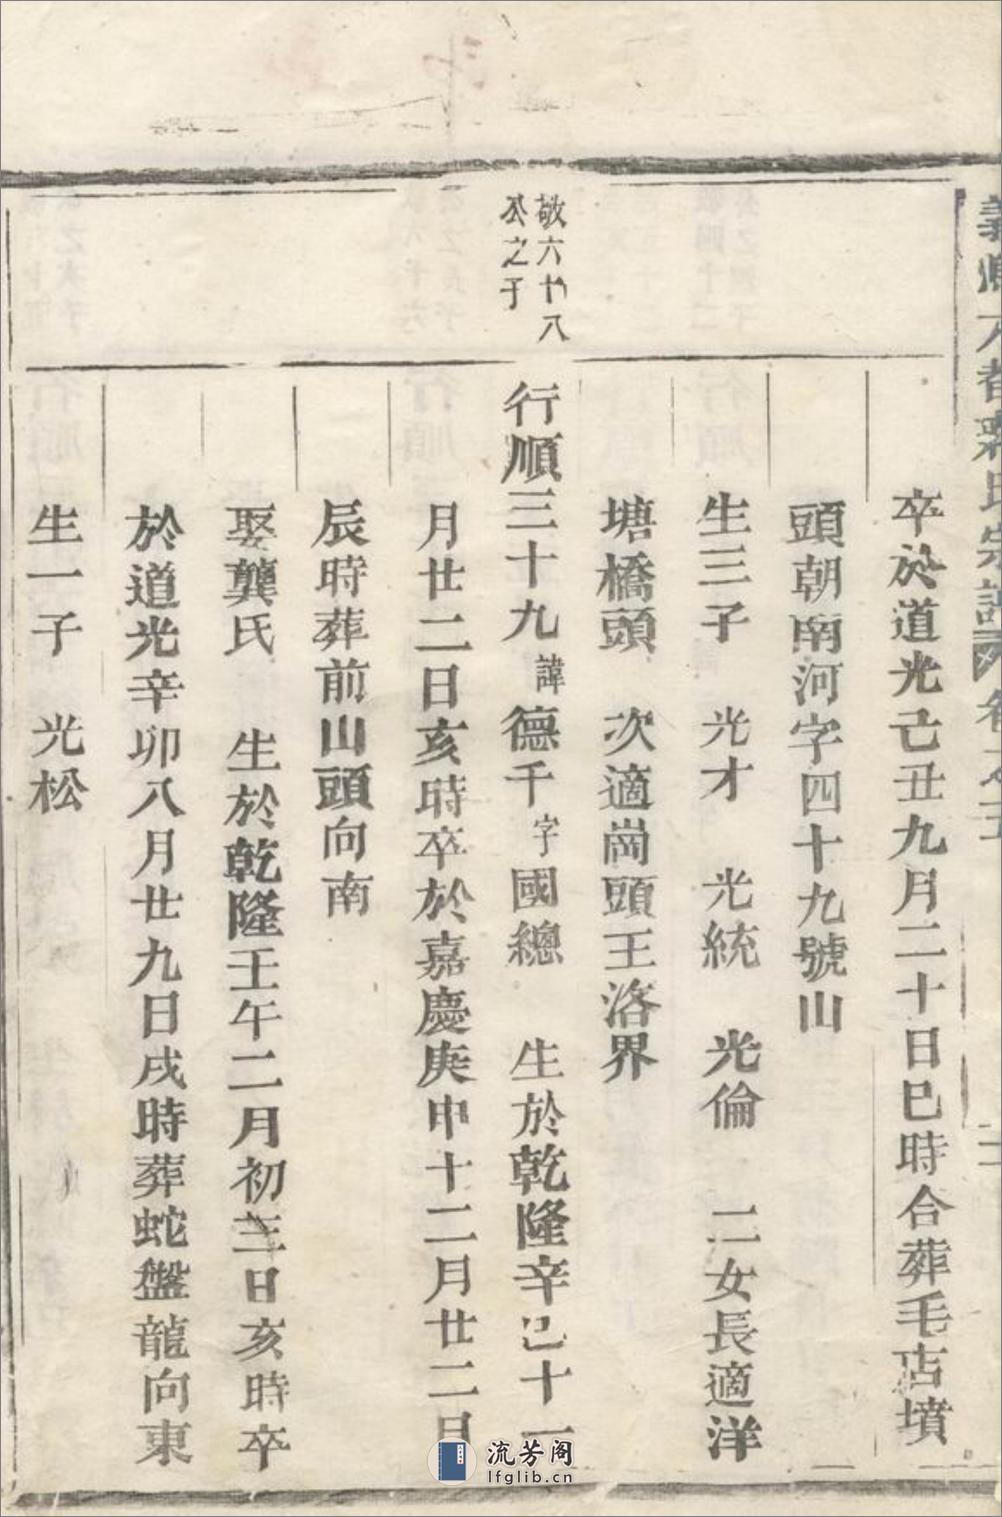 卒於道光己丑九月二十日巳時合葬毛店墳
頭朝南河字四十九號山
生三子 光才 光統 光倫 二女長適洋
塘橋頭 次適崗頭王洛界
敬六十八
公之子
行順三十九諱德千字國總 生於乾隆辛巳十一
月廿二日亥時卒於嘉慶庚申十二月廿二日
辰時葬前山頭向南
娶龔氏 生於乾隆壬午二月初三日亥時卒
於道光辛卯八月廿九日戌時葬蛇盤龍向東
生一子 光松
流芳阁
lfglib.cn